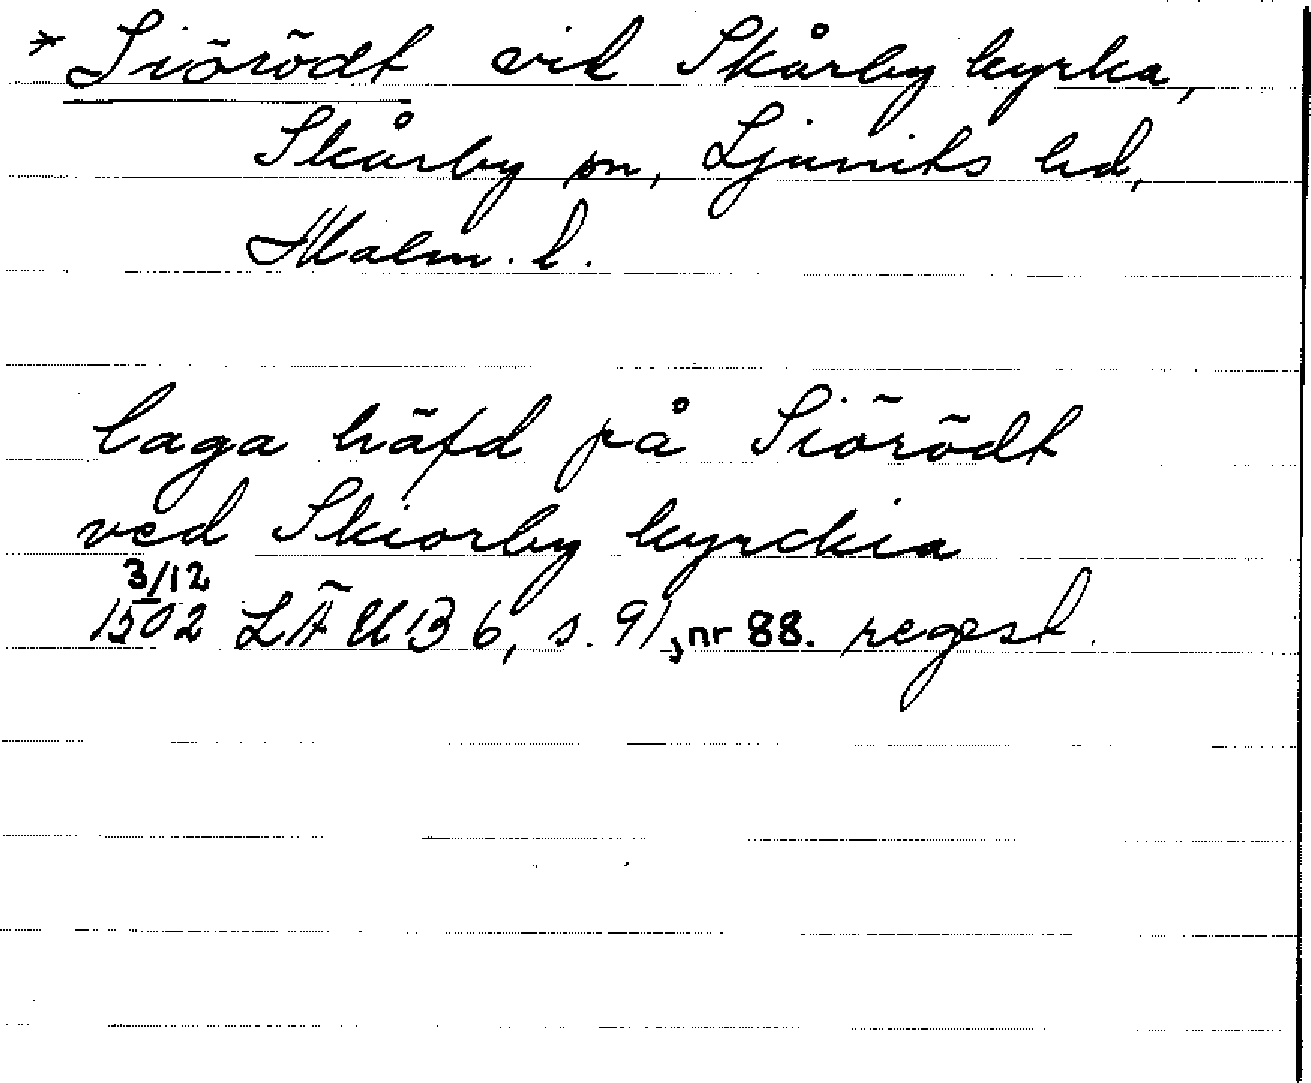 * Siörödt vid Skårby kyrka,
Skårby sn, Ljunits hd,
Malm. l.
laga häfd på Siörödt
ved Skiorby kyrckia
3/12
1502 LÄUB 6, s. 91, nr 88. regest.